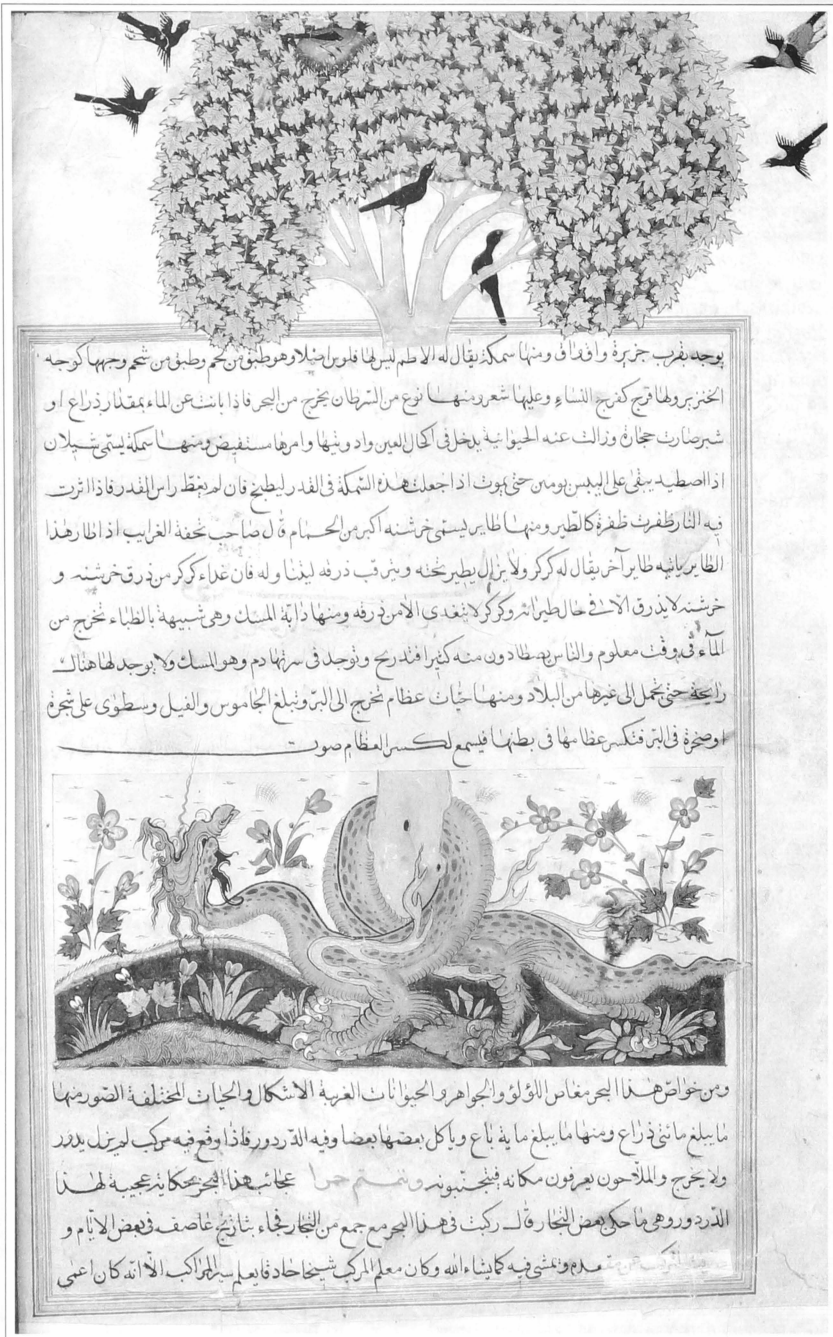 يوجد بقرب جزيرة واق واق ومنها سمكة يقال له الاطم ليس لها فلوس اصلا وهو طبق من لحم وطبق من شحم وجهها كوجه
الخنزير ولها فرج كفرج النساء وعليها شعر ومنها نوع من السرطان يخرج من البحر فاذا بانت عن الماء بمقدار ذراع او
شبر صارت حجارة وزالت عنه الحيوانية يدخل في اكحال العين وادويتها وامرها مستفيض ومنها سمكة يسمى شيلان
اذا اصطيد يبقى على اليبس يومين حتى يموت اذا جعلت هذه السمكة في القدر ليطبخ فان لم يغط راس القدر فاذا اثرت
فيه النار ظفرت ظفرة كالطير ومنها طاير يسمى خرشنه اكبر من الحمام قال صاحب تحفة الغرايب اذا طار هذا
الطاير ياتيه طاير آخر يقال له كركر ولا يزال يطير تحته ويترقب ذرقه ليتناوله فان غداء كركر من ذرق خرشنه و
خرشنه لا يذرق الا في حال طيرانه وكركر لا يتغدى الا من ذرقه ومنها دابة المسك وهي شبيهة بالظباء تخرج من
المآء في وقت معلوم والناس يصطادون منه كثيرا فتذبح وتوجد في سرتها دم وهو المسك ولا يوجد لها هناك
رايحة حتى تحمل الى غيرها من البلاد ومنها حيات عظام تخرج الى البر وتبلغ الجاموس والفيل وسطوى على شجرة
او صخرة في البر فتكسر عظامها في بطنها فيسمع لكسر العظام صوت
ومن خواص هذا البحر مغاص اللؤلؤ والجواهر والحيوانات الغريبة الاشكال والحيات المختلفة الصور منها
ما يبلغ مائتي ذراع ومنها ما يبلغ ماية باع وياكل بعضها بعضا وفيه الدردور فاذا وقع فيه مركب لم يزل يدور
ولا يخرج والملاحون يعرفون مكانه فيتجنبونه عجائب هذا البحر بحكاية عجيبة لهذا
الدردور وهي ما حكى بعض التجار قال ركبت في هذا البحر مع جمع من التجار فجاء بنا ريح عاصف في بعض الايام و
ونمشى فيه كما يشاء الله وكان معلم المركب شيخا حاذقا يعلم سير المراكب الا انه كان اعمى